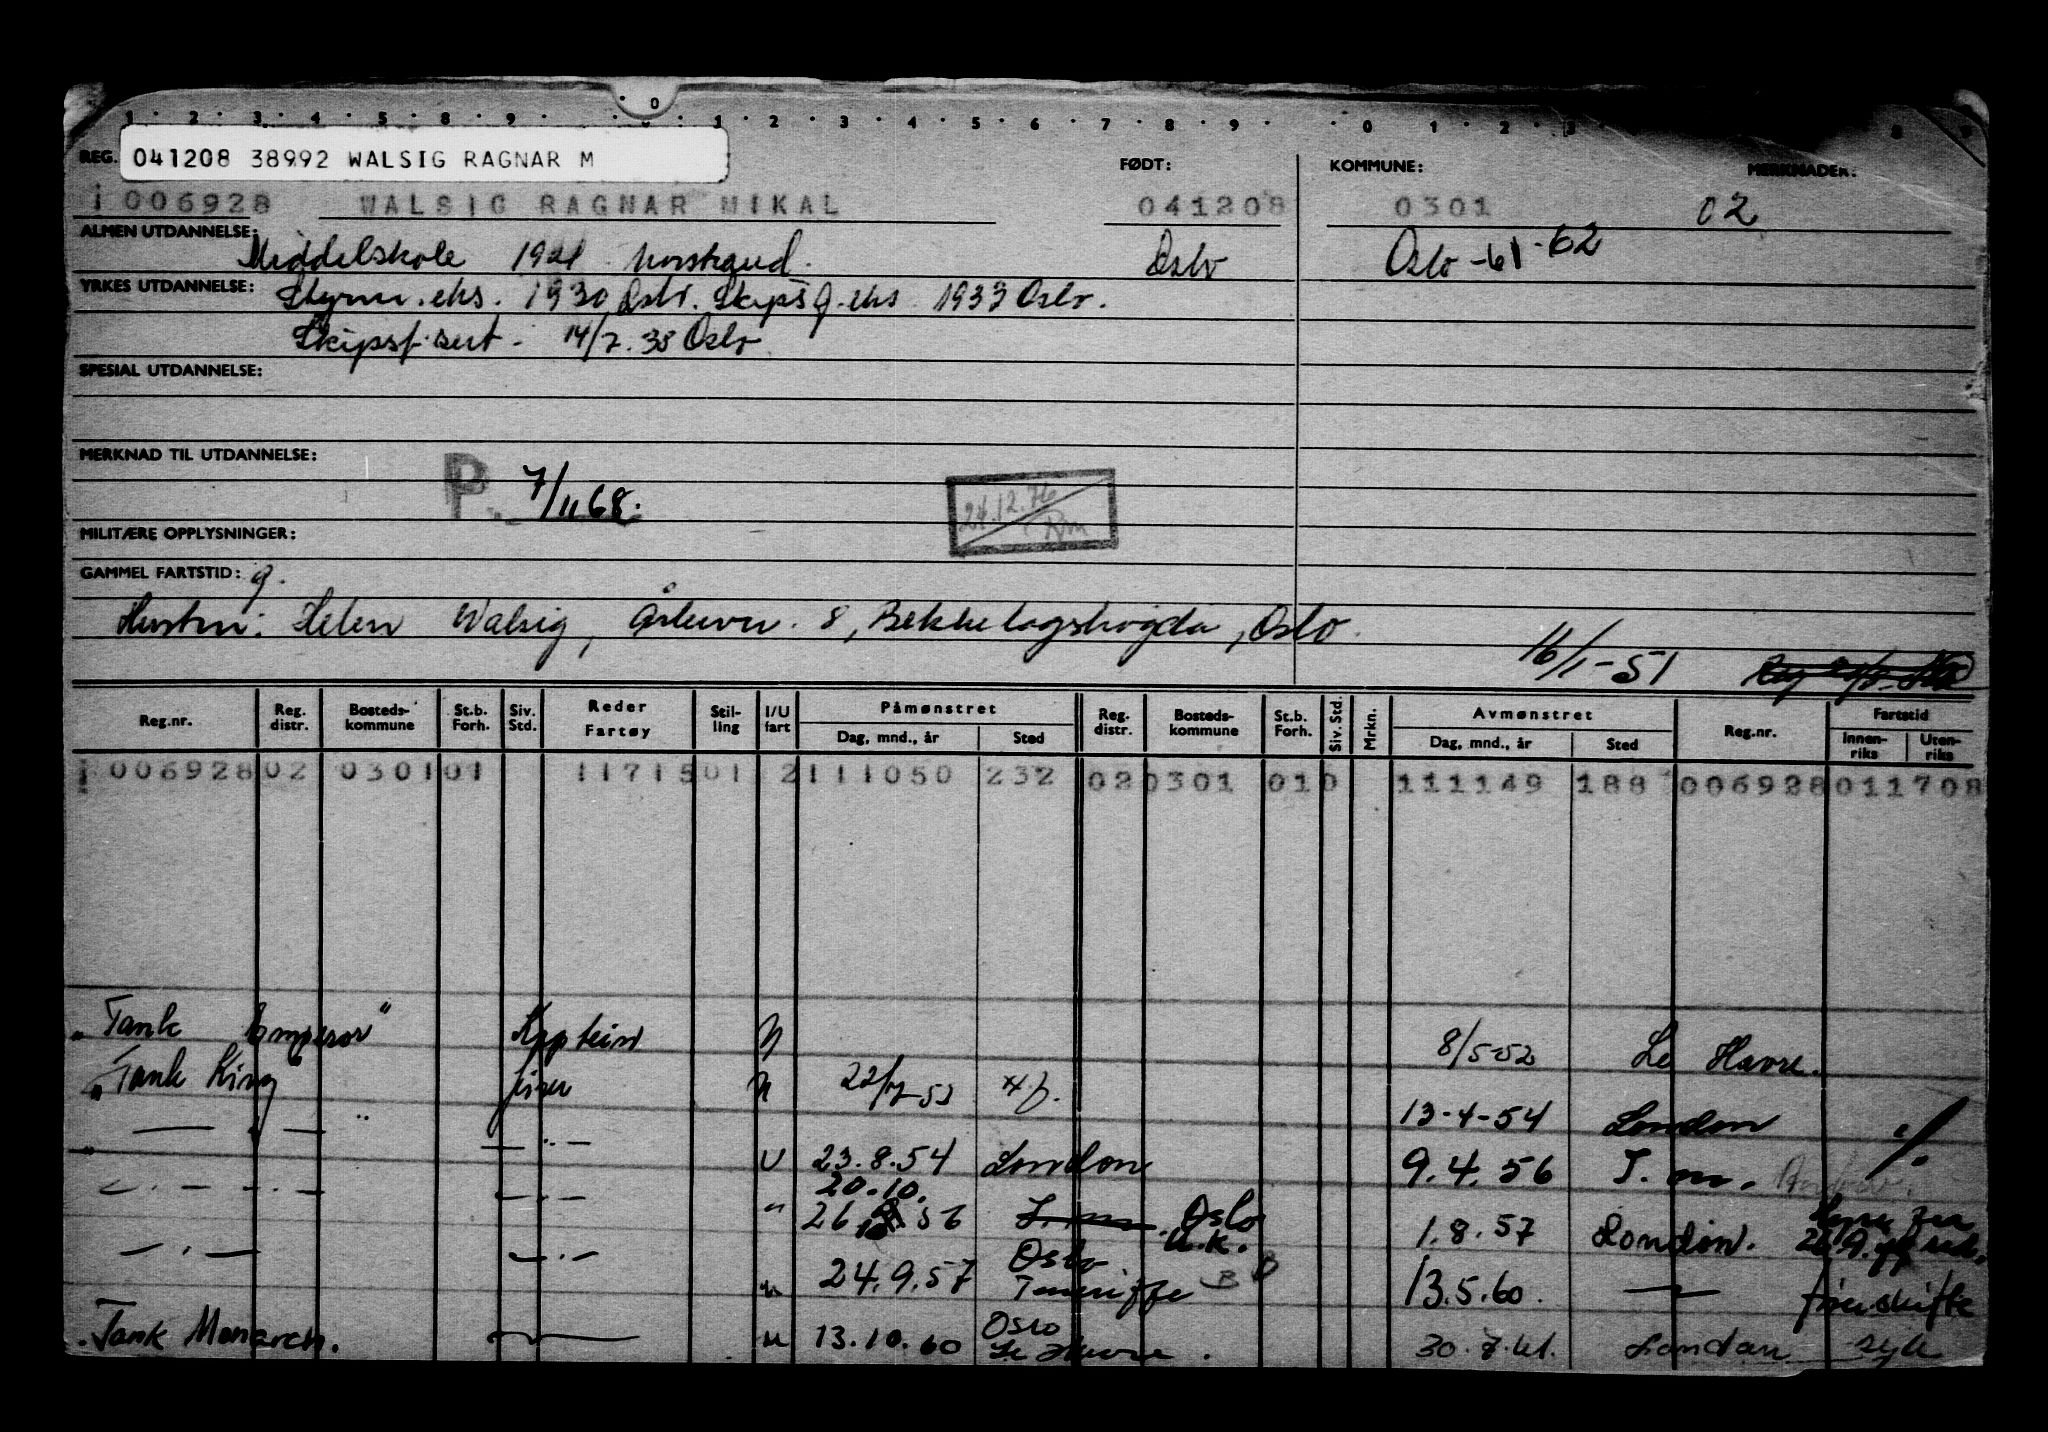 1 · 2 · 3 · 4 · 5 · 8 · 9 · 0 · 1 · 2 · 3 · 4 · 5 · 6 · 7 · 8 · 9 · 0 · 1 · 2 · 3
REG. 041208 38992 WALSIG RAGNAR M FØDT: KOMMUNE: MERKNADER:
006928 WALSIG RAGNAR MIKAL 041208 0301 02
ALMEN UTDANNELSE: Middelskole Oslo Oslo -61-62
YRKES UTDANNELSE: Styrm. eks. 1930 Oslo. Skipsf.eks 1933 Oslo.
Skipsf. sert. 14/7. 38 Oslo
SPESIAL UTDANNELSE:
MERKNAD TIL UTDANNELSE:
P. 7/11 68. 24.12.76
MILITÆRE OPPLYSNINGER:
GAMMEL FARTSTID: g.
Hustru: Helen Walsig, 8, Bekkelagshøgda, Oslo.
16/1-51
Reg.nr. Reg. distr. Bosteds-kommune St.b. Forh. Siv. Std. Reder Fartøy Stil-ling I/U fart Påmønstret Dag, mnd., år Sted Reg. distr. Bosteds-kommune St.b. Forh. Siv. Std. Mrkn. Avmønstret Dag, mnd., år Sted Reg.nr. Fartstid Innen-riks Uten-riks
006928 02 0301 01 11715 01 2 111050 232 02 0301 01 0 111149 188 006928 011708
"Tank Emperor" Kaptein U 8/5-52 Le Havre.
"Tank King" fører U 22/ -53 13-4-54 London
— " — — " — U 23.8.54 London 9.4.56
— . — . — — . — " 20.10. 26. 56 Oslo 1.8.57 London.
— . — — . — " 24.9.57 Oslo Teneriffe 13.5.60. — førerskifte
Tank Monarch. — " 13.10.60 Oslo Le Havre. 30. London syk